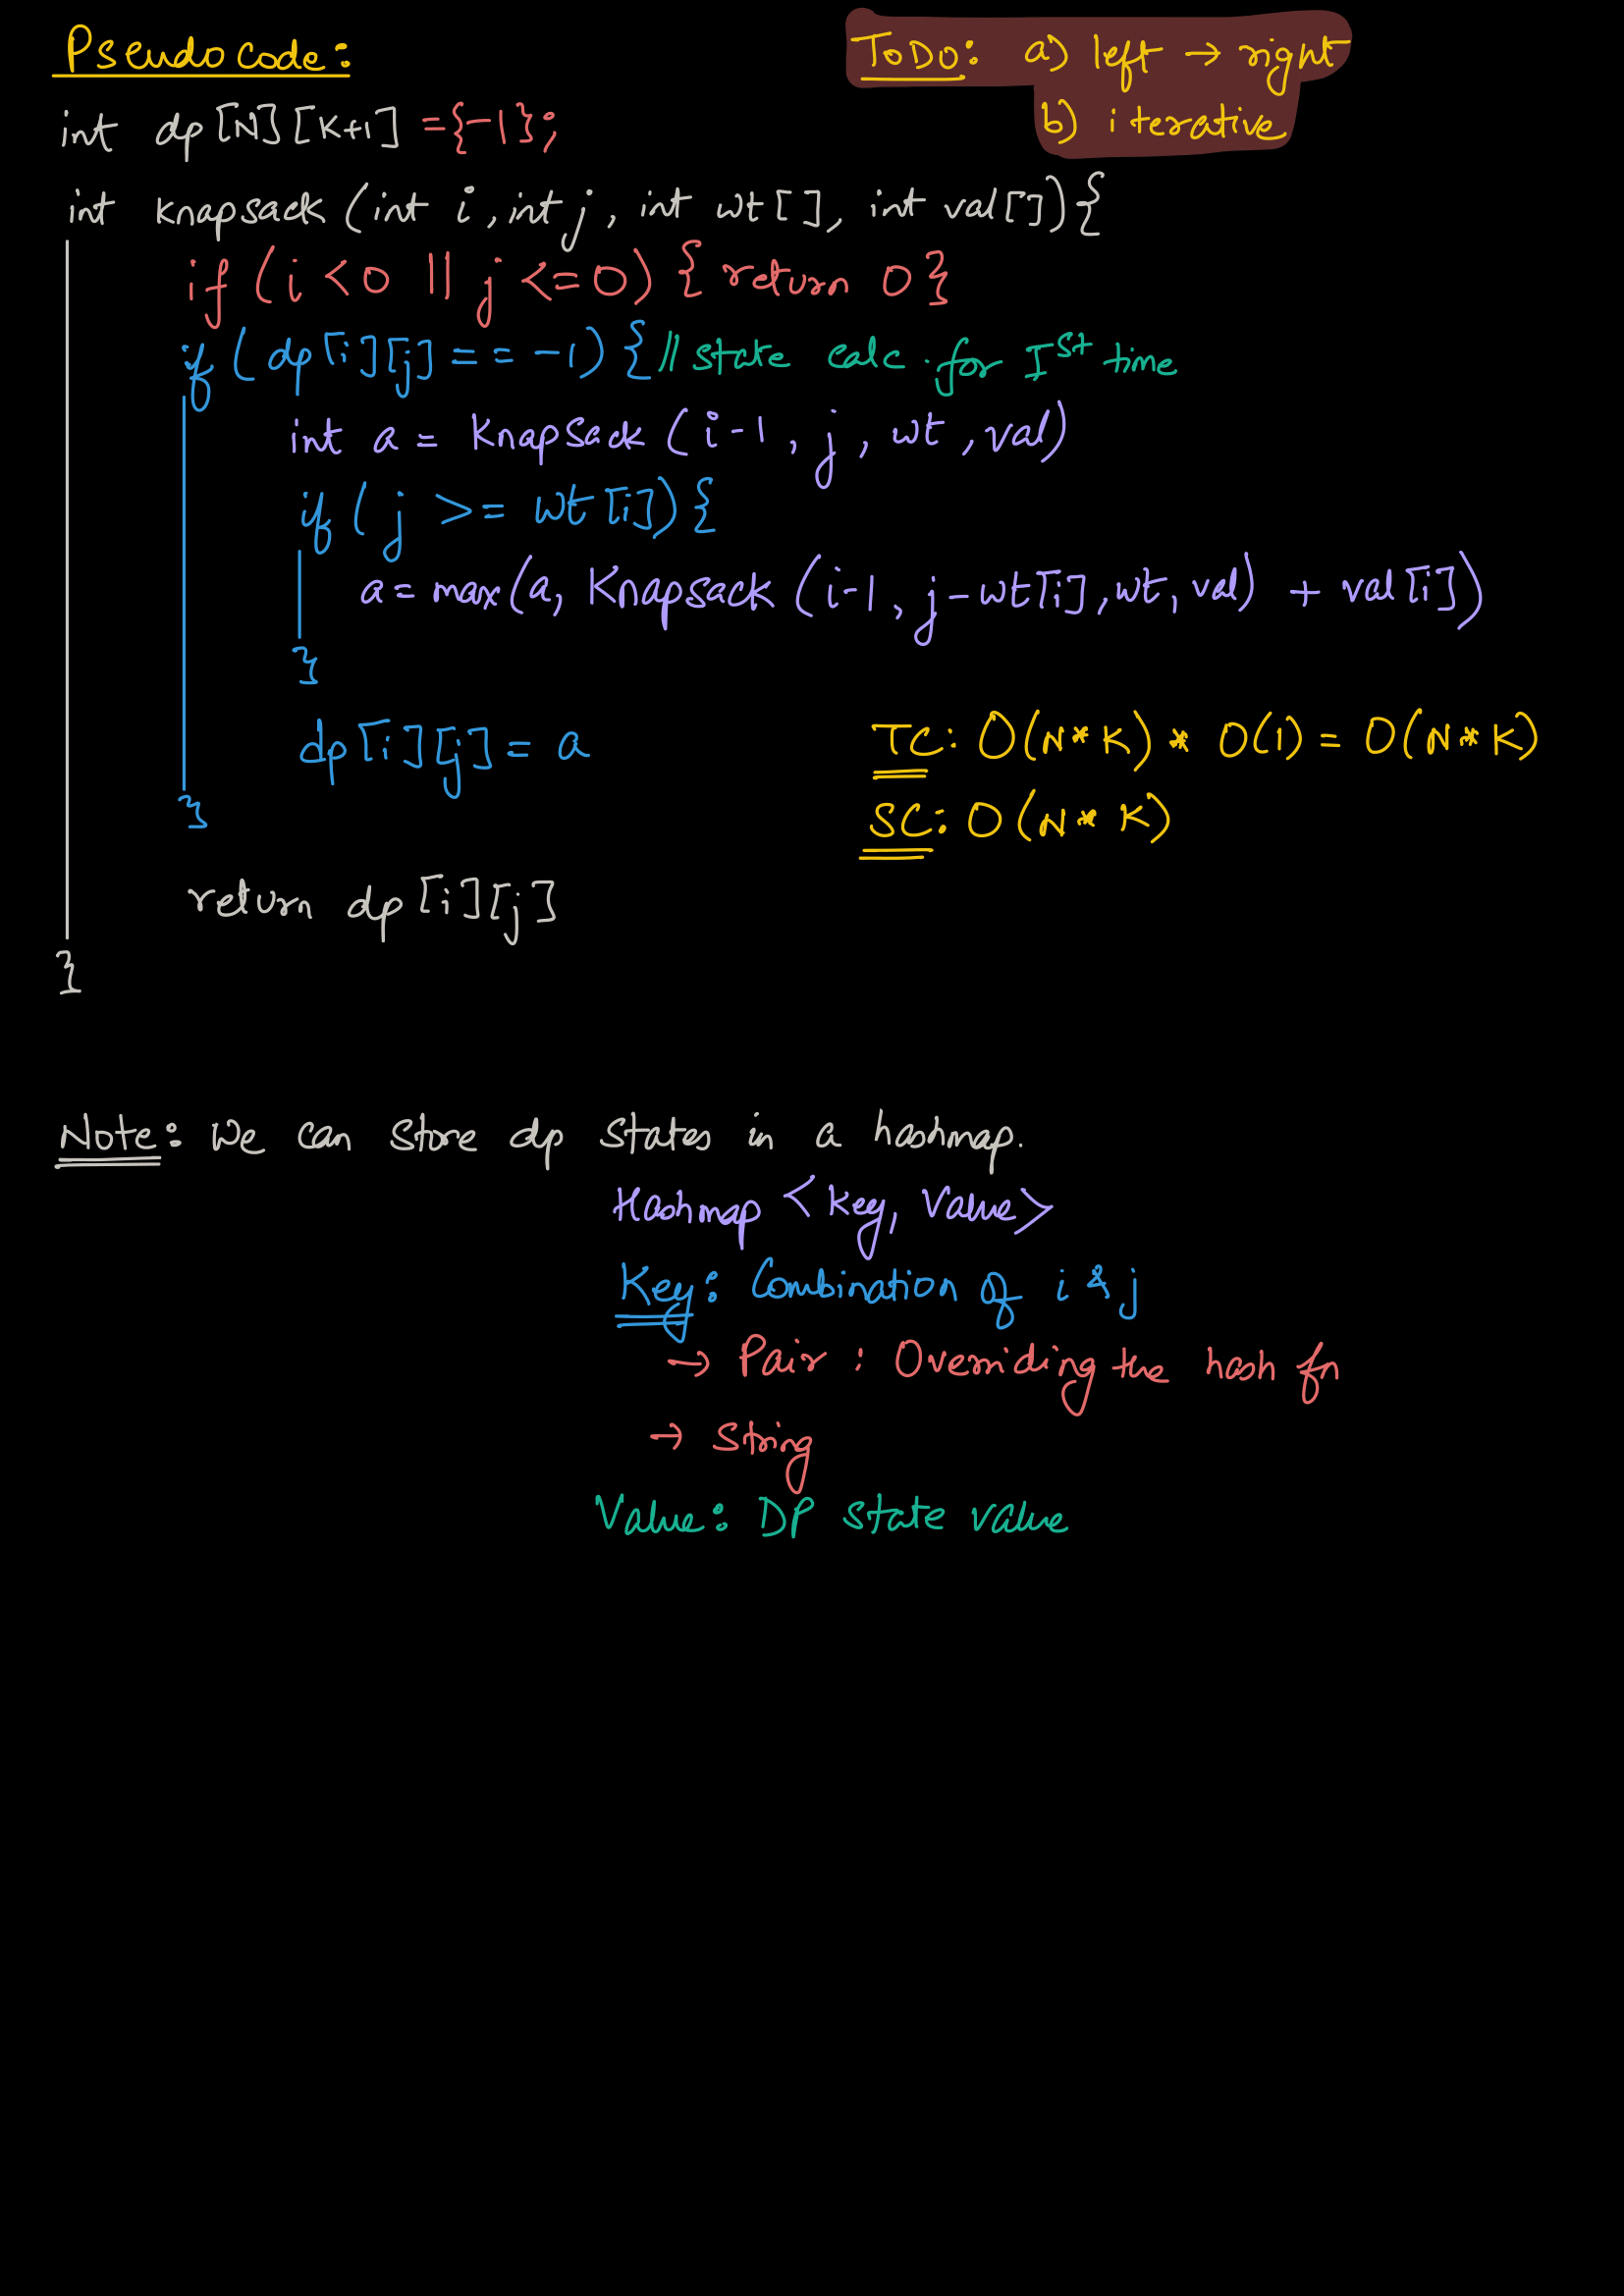 Pseudo code:
ToDo: a) left → right
b) iterative
int dp[N][K+1] ={-1};
int knapsack (int i, int j, int wt[], int val[]){
if (i < 0 || j <=0) { return 0}
if (dp[i][j] == -1) { // state calc. for Ist time
int a = Knapsack (i-1, j, wt, val)
if (j >= wt[i]) {
a = max(a, Knapsack (i-1, j-wt[i], wt, val) + val[i])
}
dp[i][j] = a
TC: O(N*K) * O(1) = O(N*K)
}
SC: O(N*K)
return dp[i][j]
}
Note: We can store dp states in a hashmap.
Hashmap <Key, Value>
Key: Combination of i & j
→ Pair : Overriding the hash fn
→ String
Value: DP state value